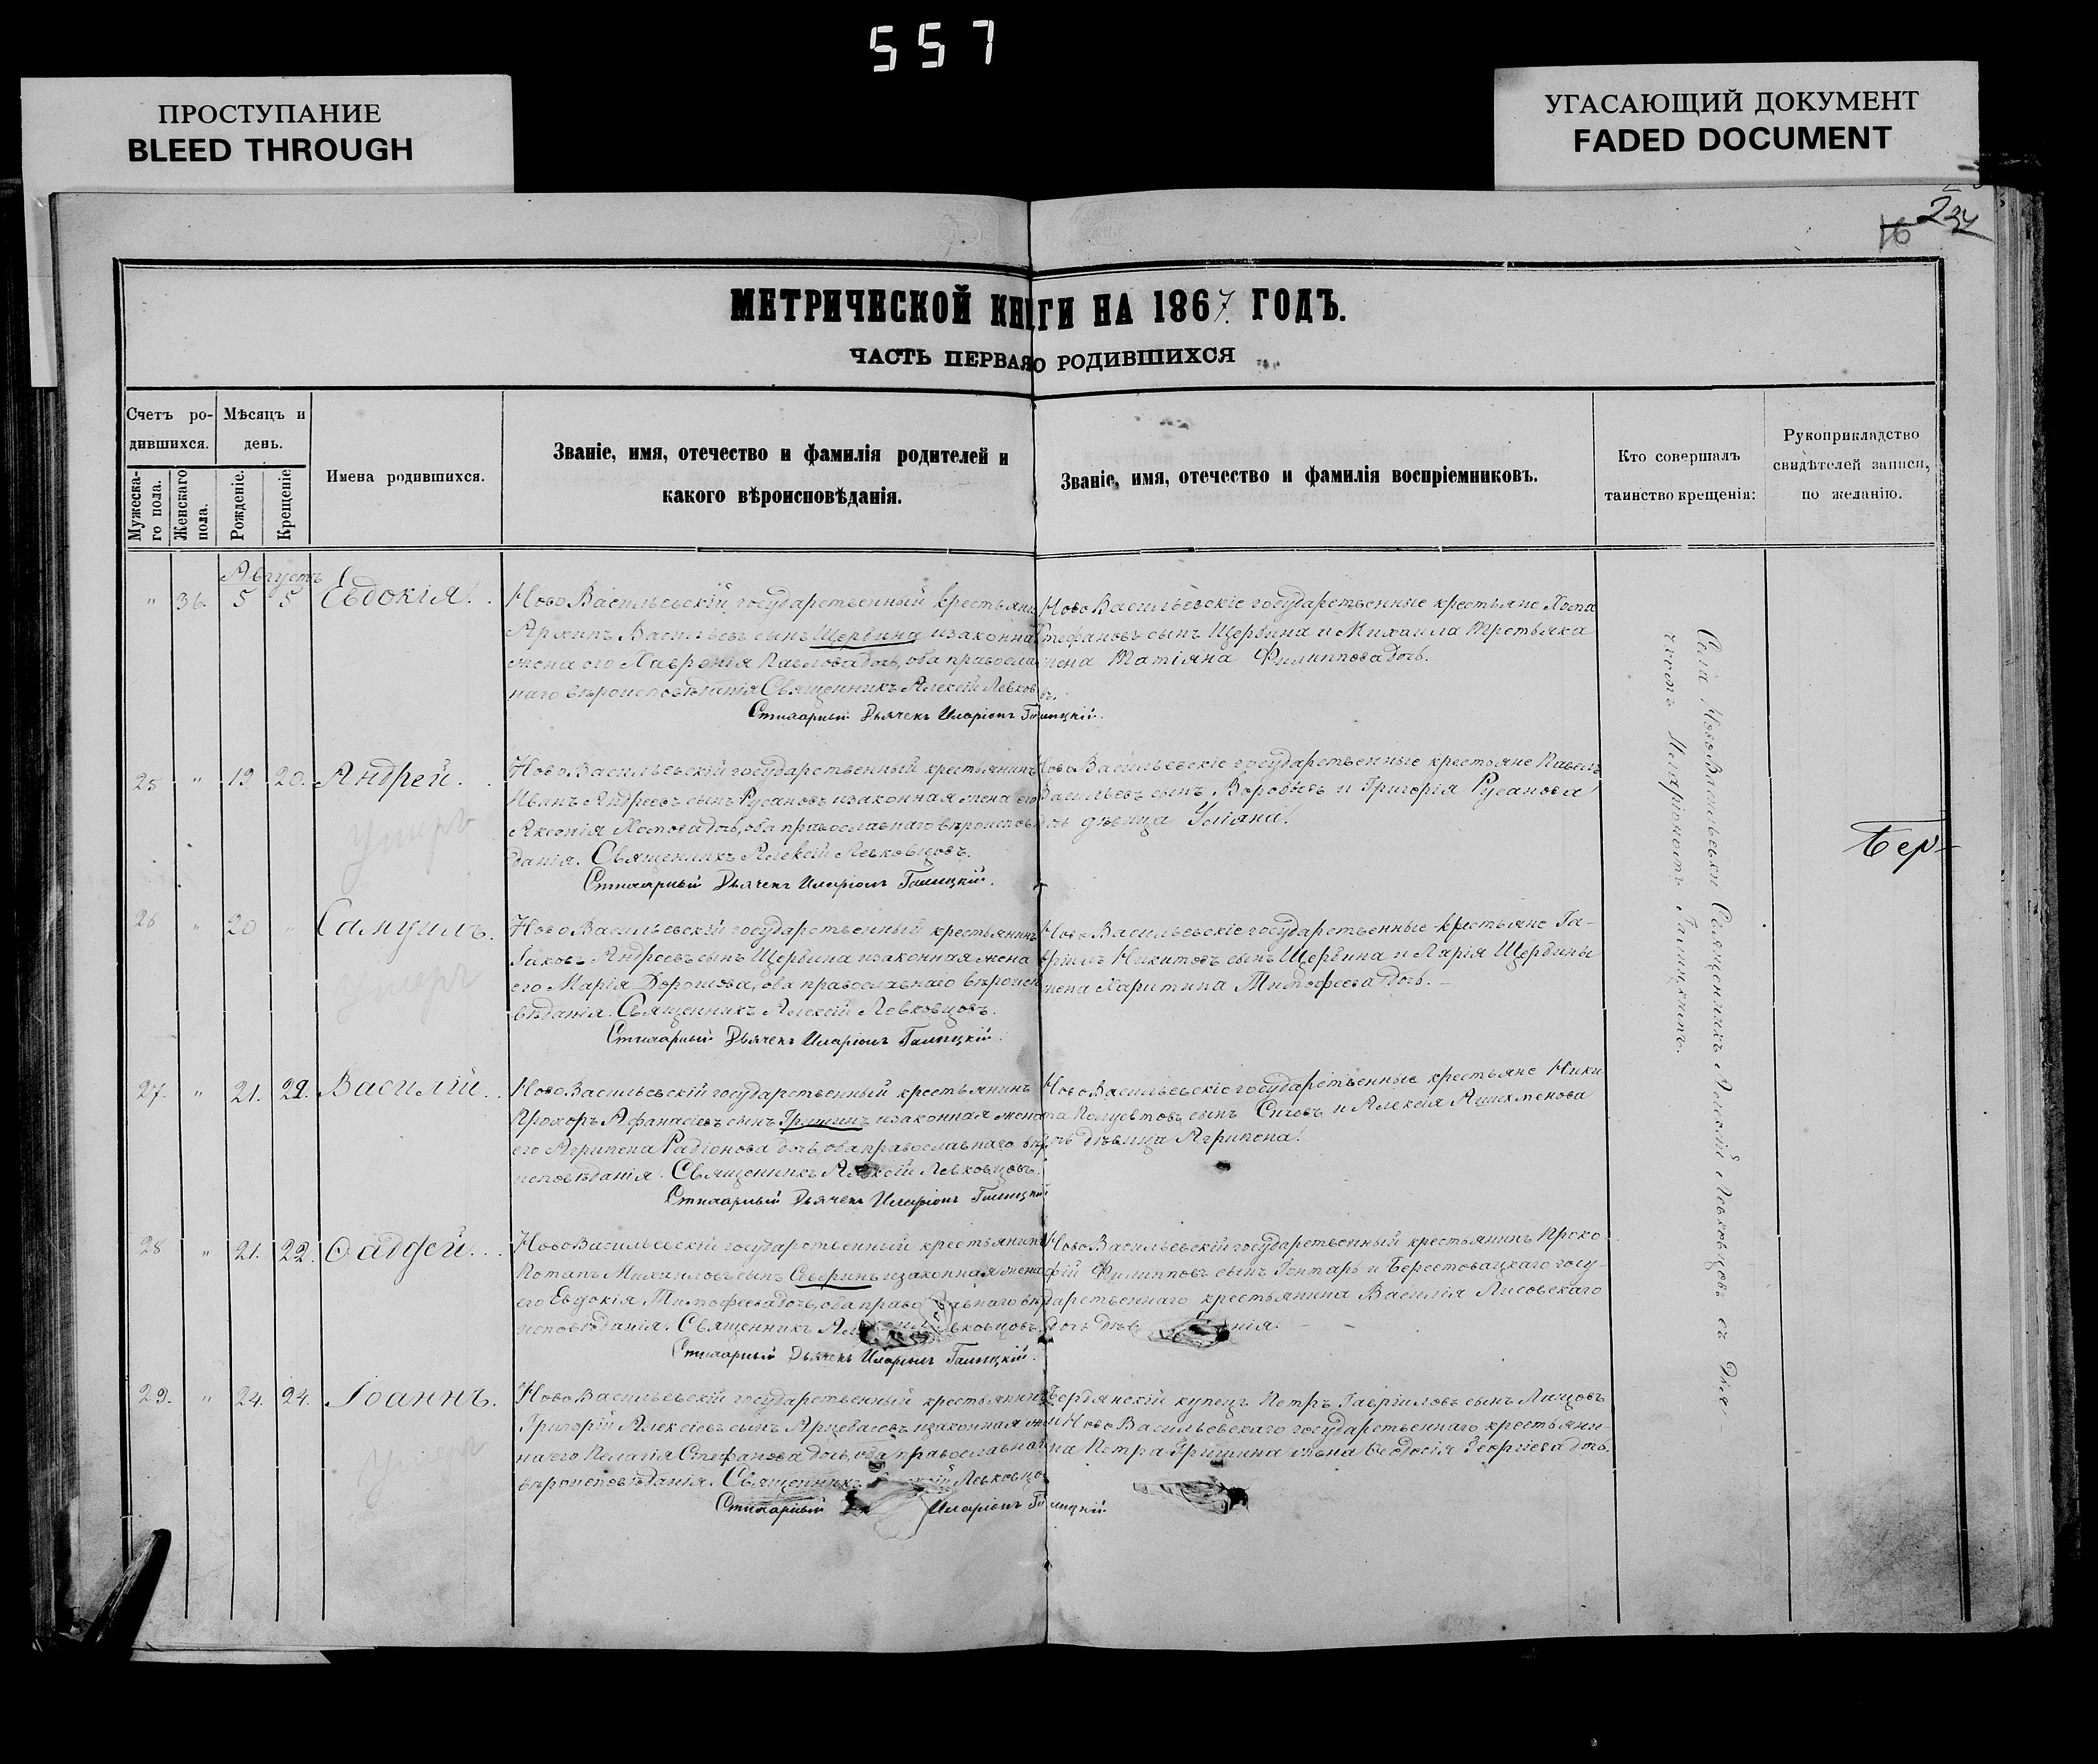 557
ПРОСТУПАНИЕ
BLEED THROUGH
УГАСАЮЩИЙ ДОКУМЕНТ
FADED DOCUMENT
16 234
МЕТРИЧЕСКОЙ КНИГИ НА 1867 ГОДЪ.
ЧАСТЬ ПЕРВАЯ О РОДИВШИХСЯ
Счетъ ро-
дившихся.
Мѣсяцъ и
день.
Мужеска-
го пола.
Женскаго
пола.
Рожденіе.
Крещеніе
Имена родившихся.
Званіе, имя, отечество и фамилія родителей и
какого вѣроисповѣданія.
Званіе, имя, отечество и фамилія воспріемниковъ.
Кто совершалъ
таинство крещенія:
Рукоприкладство
свидѣтелей записи,
по желанію.
Августъ
" 36. 5 5 Евдокія.
НовоВасильевскій государственный крестьянинъ
Архипъ Васильевъ сынъ Щербина и законная
жена его Хавронія Павлова дочь, оба православ
наго вѣроисповѣданія Священникъ Алексій Левковцовъ.
Стихарный Дьячекъ Иларіонъ Галицкій.
НовоВасильевскіе государственные крестьяне
Стефановъ сынъ Щербина и Михаила Третьяка
жена Татіяна Филиппова дочь.
25 " 19 20. Андрей.
Умеръ
НовоВасильевскій государственный крестьянинъ
Иванъ Андреевъ сынъ Русановъ и законная жена его
Аксенія дочь, оба православнаго вѣроисповѣ
данія. Священникъ Алексій Левковцовъ.
Стихарный Дьячекъ Иларіонъ Галицкій.
НовоВасильевскіе государственные крестьяне Павелъ
Васильевъ сынъ Воробьевъ и Григорія Русанова
дочь дѣвица Уліяна.
26 " 20 " Самуилъ.
Умеръ
НовоВасильевскій государственный крестьянинъ
Іаковъ Андреевъ сынъ Щербина и законная жена
его Марія Дорошова, оба православнаго вѣроиспо
вѣданія. Священникъ Алексій Левковцовъ.
Стихарный Дьячекъ Иларіонъ Галицкій.
НовоВасильевскіе государственные крестьяне Га-
вріилъ Никитовъ сынъ Щербина и Щербины
жена Харитина Тимофеева дочь.
27. " 21. 22. Василій.
НовоВасильевскій государственный крестьянинъ
Прохоръ Афанасіевъ сынъ Гришинъ и законная жена
его Агрипена Радіонова дочь, оба православнаго вѣро
исповѣданія. Священникъ Алексій Левковцовъ.
Стихарный Дьячекъ Иларіонъ Галицкій
НовоВасильевскіе государственные крестьяне Ники
та сынъ Сычевъ и Алексія
дочь дѣвица Агрипена.
28 " 21. 22. Фаддей.
НовоВасильевскій государственный крестьянинъ
Потапъ Михаиловъ сынъ Северинъ и законная жена
его Евдокія Тимофеева дочь, оба православнаго вѣро
исповѣданія. Священникъ Левковцовъ.
Стихарный Дьячекъ Иларіонъ Галицкій.
НовоВасильевскій государственный крестьянинъ Проко
фій Филипповъ сынъ Гонтарь и Берестовацкаго госу-
дарственнаго крестьянина Василія Лисовскаго
дочь
29. " 24. 24. Іоаннъ.
Умеръ
НовоВасильевскій государственный крестьянинъ
Григорій Алексіевъ сынъ и законная же
на его Пелагія Стефанова дочь, оба православнаго
вѣроисповѣданія. Священникъ Левковцо
Стихарный Иларіонъ Галицкій
Бердянскій купецъ Петръ Гавріиловъ сынъ
и НовоВасильевскаго государственнаго крестьяни-
на Петра Гришина жена Феодосія Георгіева дочь.
Села НовоВасильевки Священникъ Алексій Левковцовъ съ Дья-
чкомъ Иларіономъ Галицкимъ.
Бер-